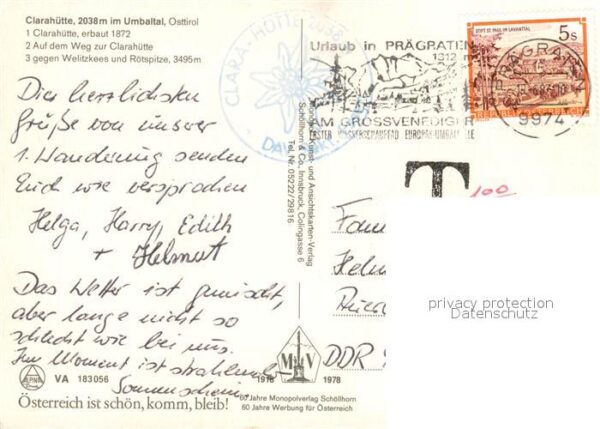 Clarahütte, 2038 m im Umbaltal, Osttirol
1 Clarahütte, erbaut 1872
2 Auf dem Weg zur Clarahütte
3 gegen Welitzkees und Rötspitze, 3495 m
Die herzlichsten
Grüße von unserer
1. Wanderung senden
Euch wie versprochen
Helga, Harry, Edith
+ Helmut
Das Wetter ist gemischt,
aber lange nicht so
schlecht wie bei uns.
Im Moment ist strahlender
Sonnenschein.
VA 183056
Österreich ist schön, komm, bleib!
CLARA-HÜTTE 2038
Kunst- und Ansichtskarten-Verlag
Schöllhorn & Co., Innsbruck, Colingasse 6
Tel. Nr. 05222/29816
MV
1918 1978
60 Jahre Monopolverlag Schöllhorn
60 Jahre Werbung für Österreich
Urlaub in PRÄGRATEN
1312 m
AM GROSSVENEDIGER
ERSTER WASSERSCHAUPFAD EUROPAS-UMBALFÄLLE
STIFT ST. PAUL IM LAVANTTAL
5 S
REPUBLIK
PRÄGRATEN
9974
T
100
Fam
Helm
DDR
privacy protection
Datenschutz